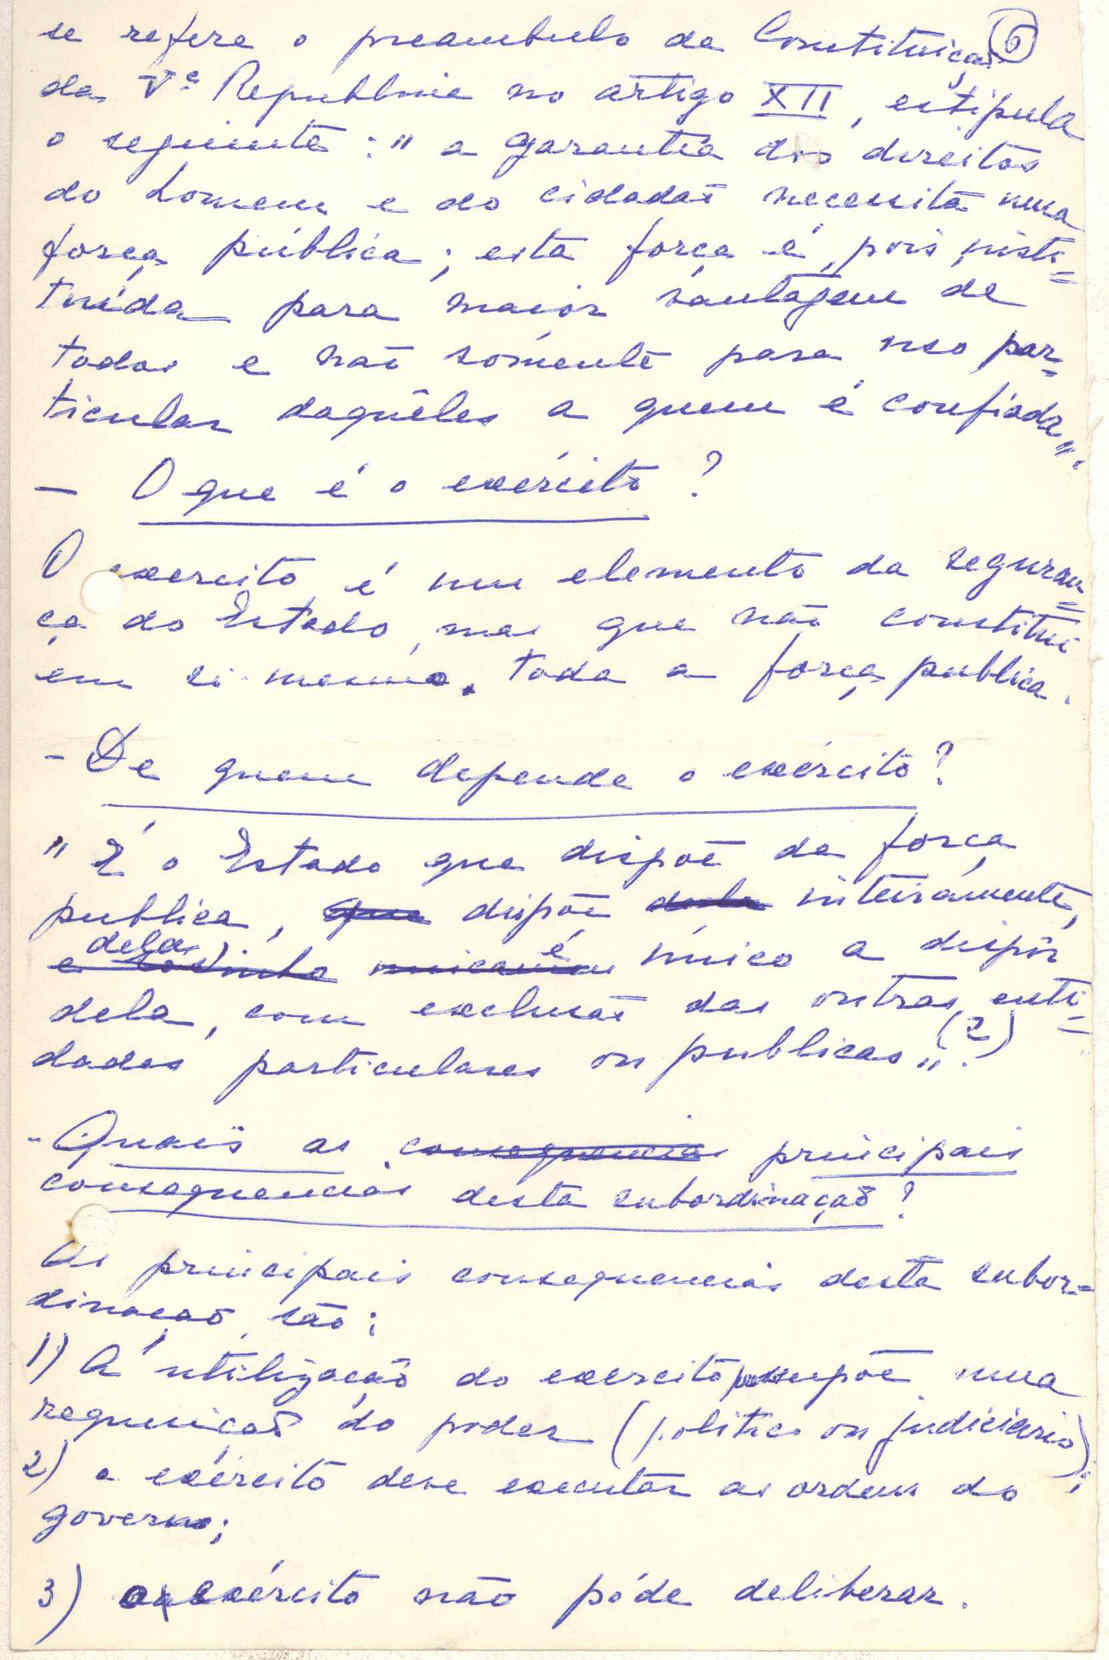 se refere o preambulo da Constituição (6)
da Vª Republica no artigo XII, estipula
o seguinte: "a garantia dos direitos
do homem e do cidadão necessita uma
força pública; esta força é, pois, insti=
tuída para maior vantagem de
todos e não sómente para uso par=
ticular daquêles a quem é confiada".
- O que é o exército?
O exercito é um elemento da seguran=
ça do Estado, mas que não constitui
em si mesmo, toda a força publica.
- De quem depende o exército?
" É o Estado que dispõe da força
publica, que dispõe dela inteiramente,
dela
e é único a dispôr
dela, com exclusão das outras enti=
dades particulares ou publicas". (2)
- Quais as consequencias principais
consequencias desta subordinação?
As principais consequencias desta subor=
dinação, são:
1) A utilização do exercito supõe uma
requisição do poder (politico ou judiciario);
2) o exército deve executar as ordens do
governo;
3) o exército não póde deliberar.